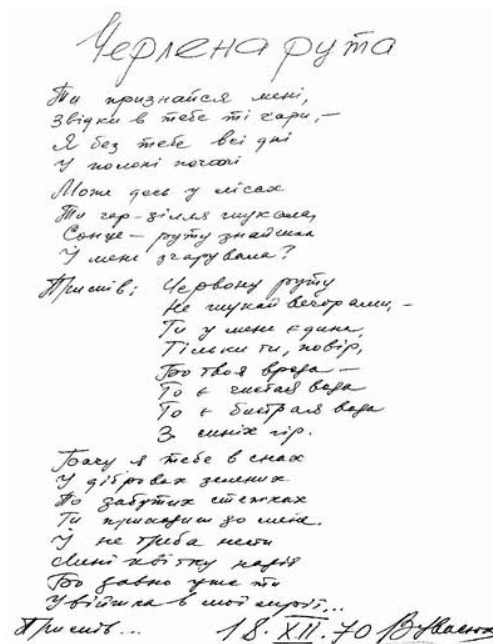 Черлена рута
Ти признайся мені,
Звідки в тебе ті чари, –
Я без тебе всі дні
У полоні печалі
Може десь у лісах
Ти чар-зілля шукала,
Сонце – руту знайшла
Й мене зчарувала?
Приспів: Червону руту
Не шукай вечорами, –
Ти у мене єдина,
Тільки ти, повір,
Бо твоя врода –
То є чистая вода
То є бистрая вода
З синіх гір.
Бачу я тебе в снах
У дібровах зелених
По забутих стежках
Ти приходиш до мене.
Й не треба нести
Мені квітку надій
Бо давно уже ти
Увійшла в мої мрії...
Приспів... 18.XII.70